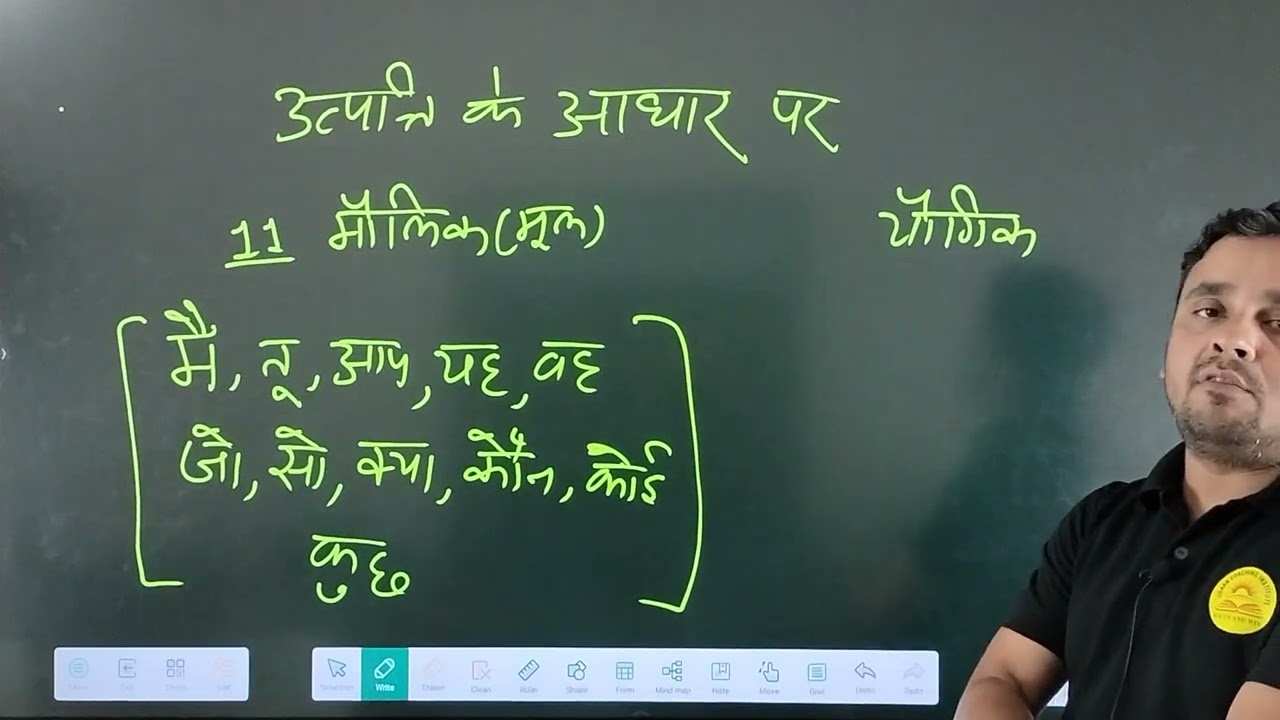 उत्पत्ति के आधार पर
11 मौलिक(मूल) यौगिक
मैं, तू, आप, यह, वह
जो, सो, क्या, कौन, कोई
कुछ
Selection Write Eraser Clean Ruler Shape Form Mind map Note Move Grid Undo Redo